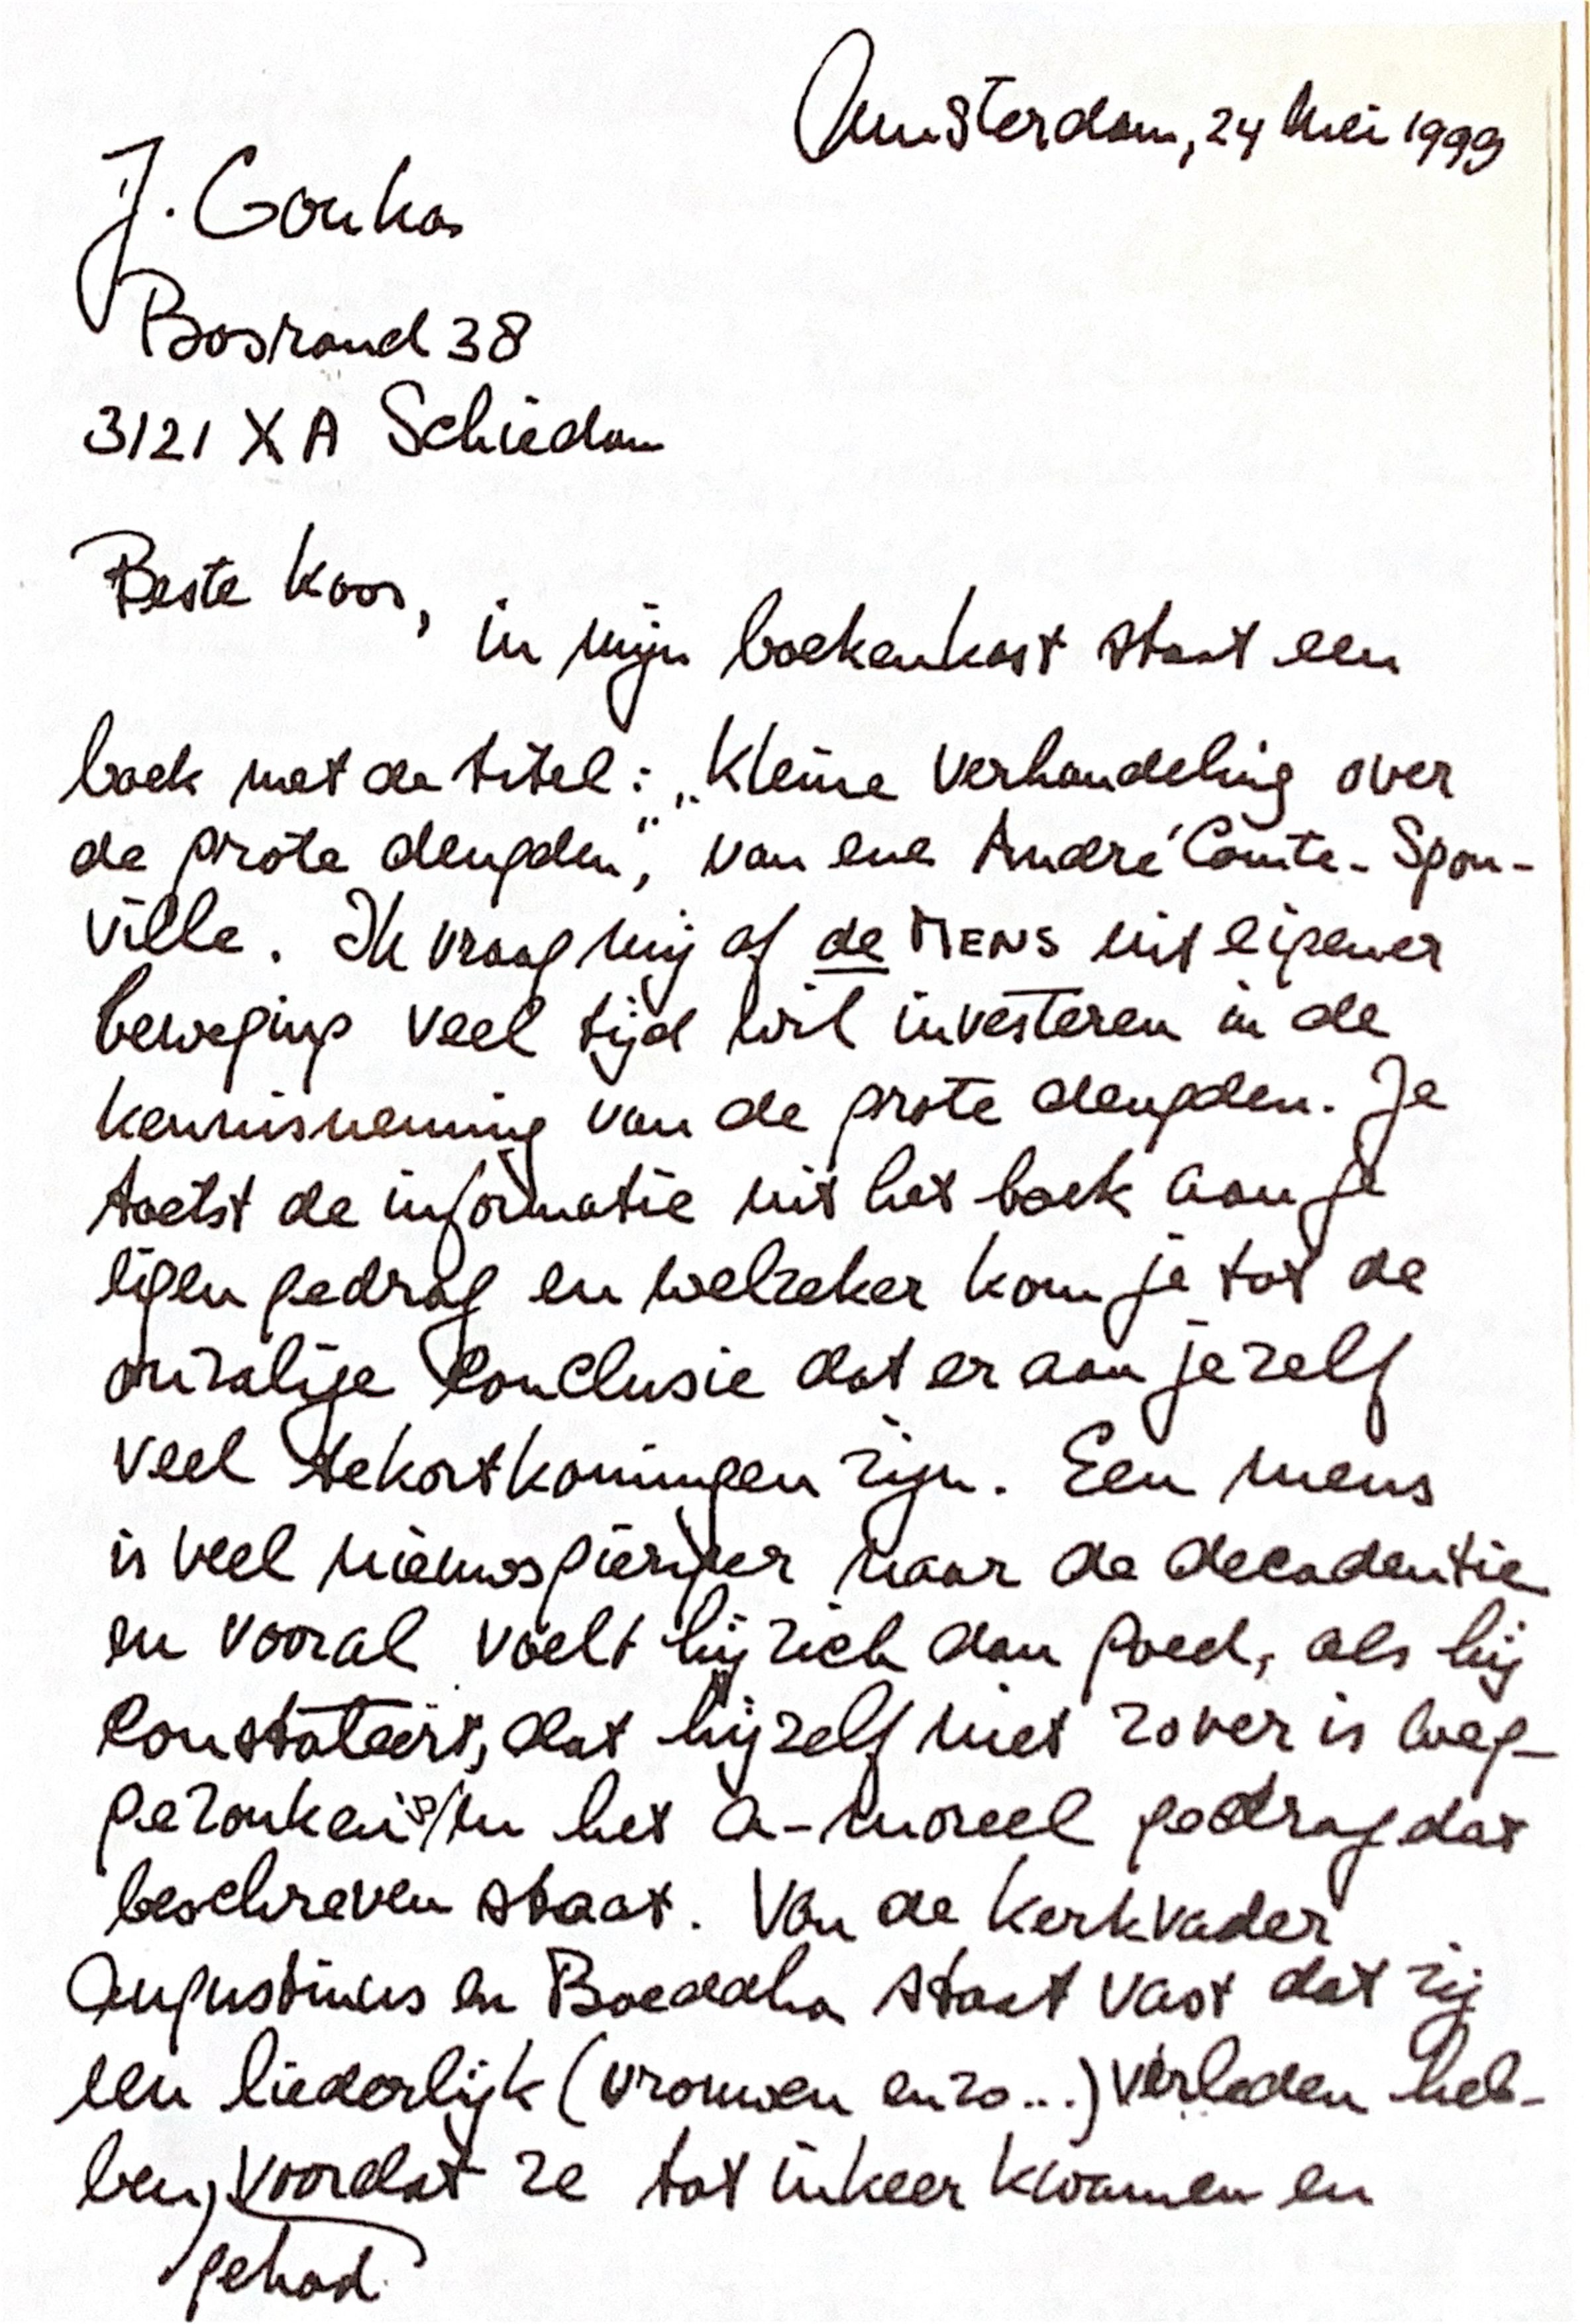 Amsterdam, 24 Mei 1999
J. Gouka
Bosrand 38
3121 XA Schiedam
Beste Koos,
in mijn boekenkast staat een
boek met de titel: „Kleine verhandeling over
de grote deugden”, van ene André Comte-Spon-
ville. Ik vraag mij af de MENS uit eigener
beweging veel tijd wil investeren in de
kennisneming van de grote deugden. Je
toetst de informatie uit het boek aan je
eigen gedrag en welzeker kom je tot de
onzalige conclusie dat er aan jezelf
veel tekortkomingen zijn. Een mens
is veel nieuwsgieriger naar de decadentie
en vooral voelt hij zich dan goed, als hij
constateert, dat hijzelf niet zover is weg-
gezonken in het a-moreel gedrag dat
beschreven staat. Van de kerkvader
Augustinus en Boeddha staat vast dat zij
een liederlijk (vrouwen enzo...) verleden heb-
ben, voordat ze tot inkeer kwamen en
gehad